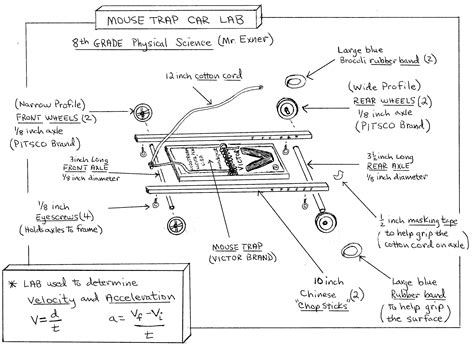 MOUSE TRAP CAR LAB
8th GRADE Physical Science (Mr. Exner)
Large blue
Brocoli rubber band (2)
12 inch cotton cord
(Narrow Profile)
FRONT WHEELS (2)
1/8 inch axle
(PITSCO Brand)
(Wide Profile)
REAR WHEELS (2)
1/8 inch axle
(PITSCO Brand)
3 inch Long
FRONT AXLE
1/8 inch diameter
VICTOR
3 1/2 inch Long
REAR AXLE
1/8 inch diameter
1/8 inch
Eyescrews (4)
(Holds axles to frame)
1/2 inch masking tape
(to help grip the
cotton cord on axle)
MOUSE TRAP
(VICTOR BRAND)
10 inch
Chinese (2)
"Chop Sticks"
Large blue
Rubber band
(to help grip
the surface)
* LAB used to determine
Velocity and Acceleration
V = d/t a = Vf - Vi/t